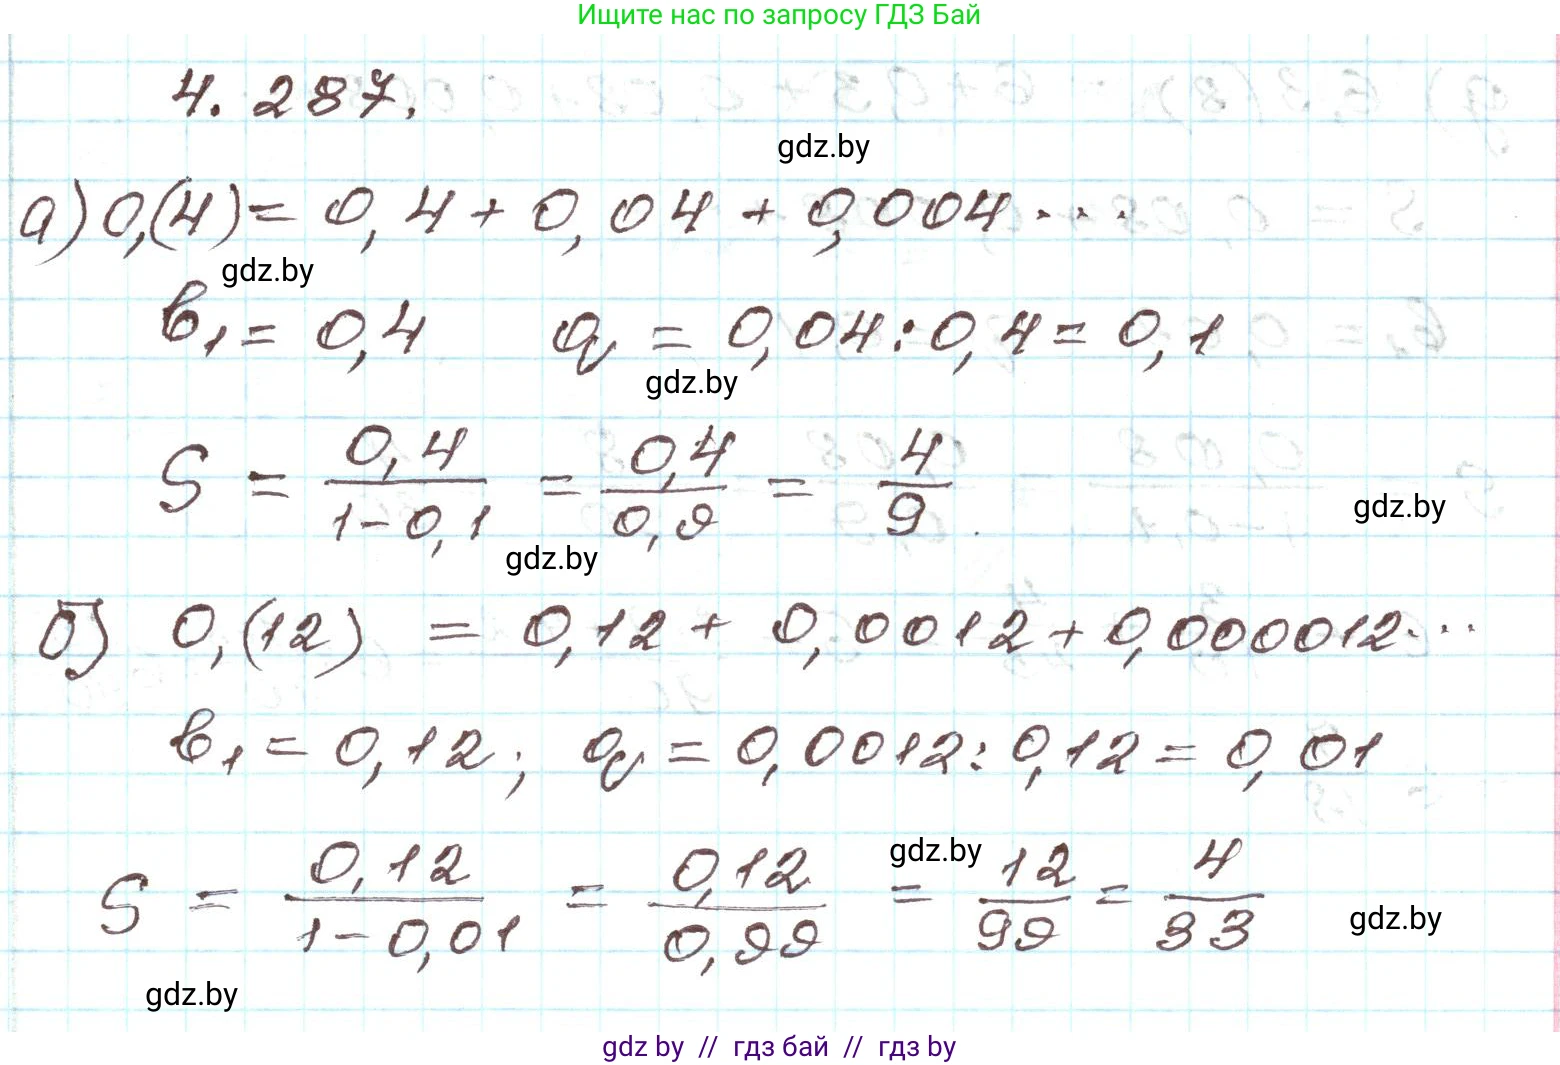 Ищите нас по запросу ГДЗ Бай
4.287.
gdz.by
а) 0,(4) = 0,4 + 0,04 + 0,004 ...
gdz.by
b₁ = 0,4 q = 0,04 : 0,4 = 0,1
gdz.by
S = 0,4/(1-0,1) = 0,4/0,9 = 4/9
gdz.by
gdz.by
б) 0,(12) = 0,12 + 0,0012 + 0,000012 ...
b₁ = 0,12; q = 0,0012 : 0,12 = 0,01
gdz.by
S = 0,12/(1-0,01) = 0,12/0,99 = 12/99 = 4/33
gdz.by
gdz.by
gdz by // гдз бай // гдз by